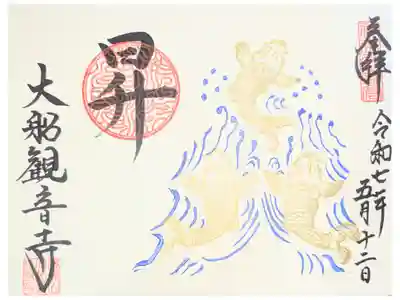 奉拝
令和七年
五月十二日
昇
大船観音寺